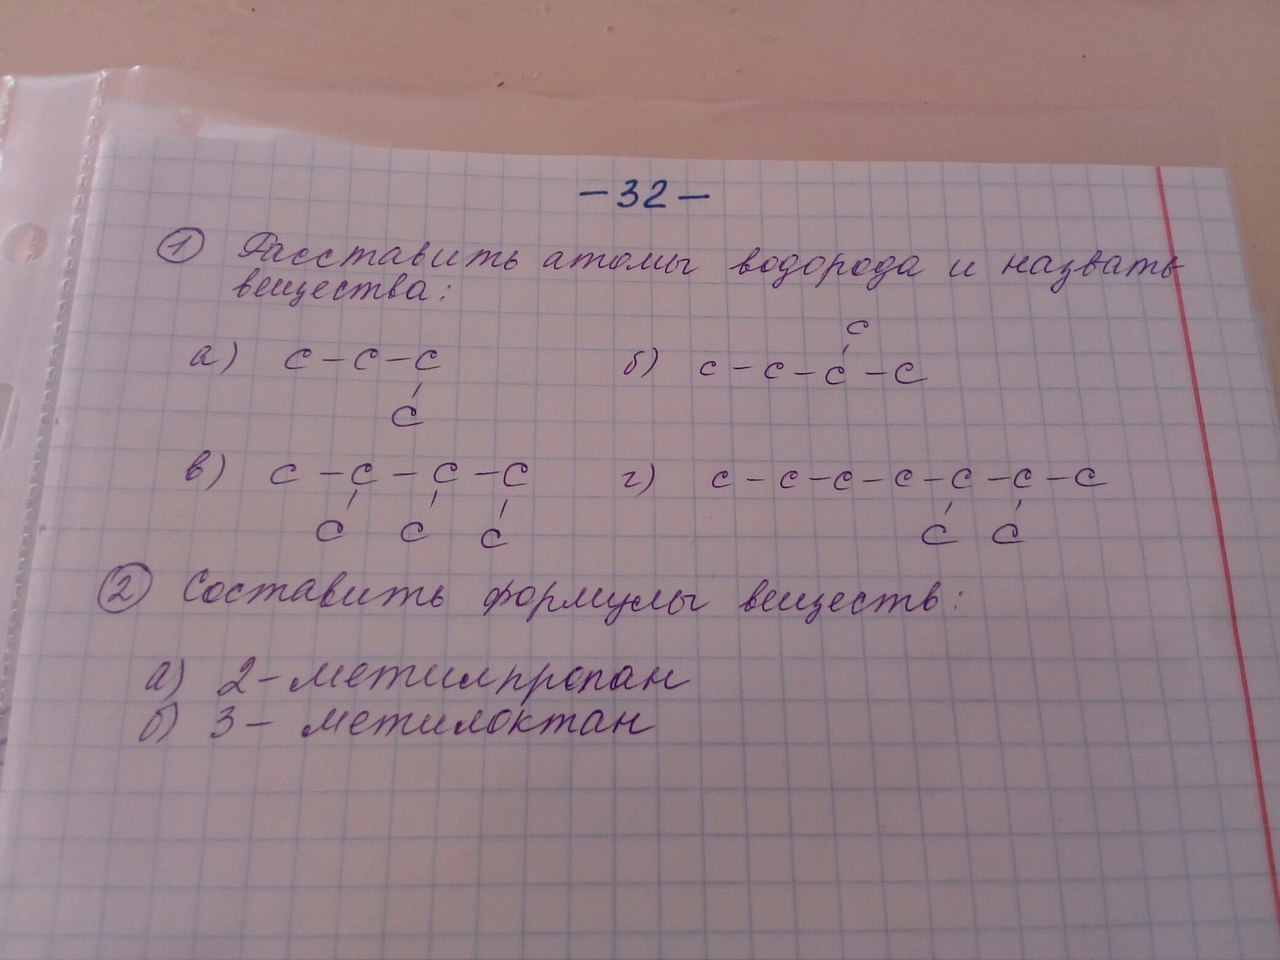 - 32 -
① Расставить атомы водорода и назвать
вещества:
C
а) C - C - C б) C - C - C - C
C
в) C - C - C - C г) C - C - C - C - C - C - C
C C C C C
② Составить формулы веществ:
а) 2 - метилпропан
б) 3 - метилоктан